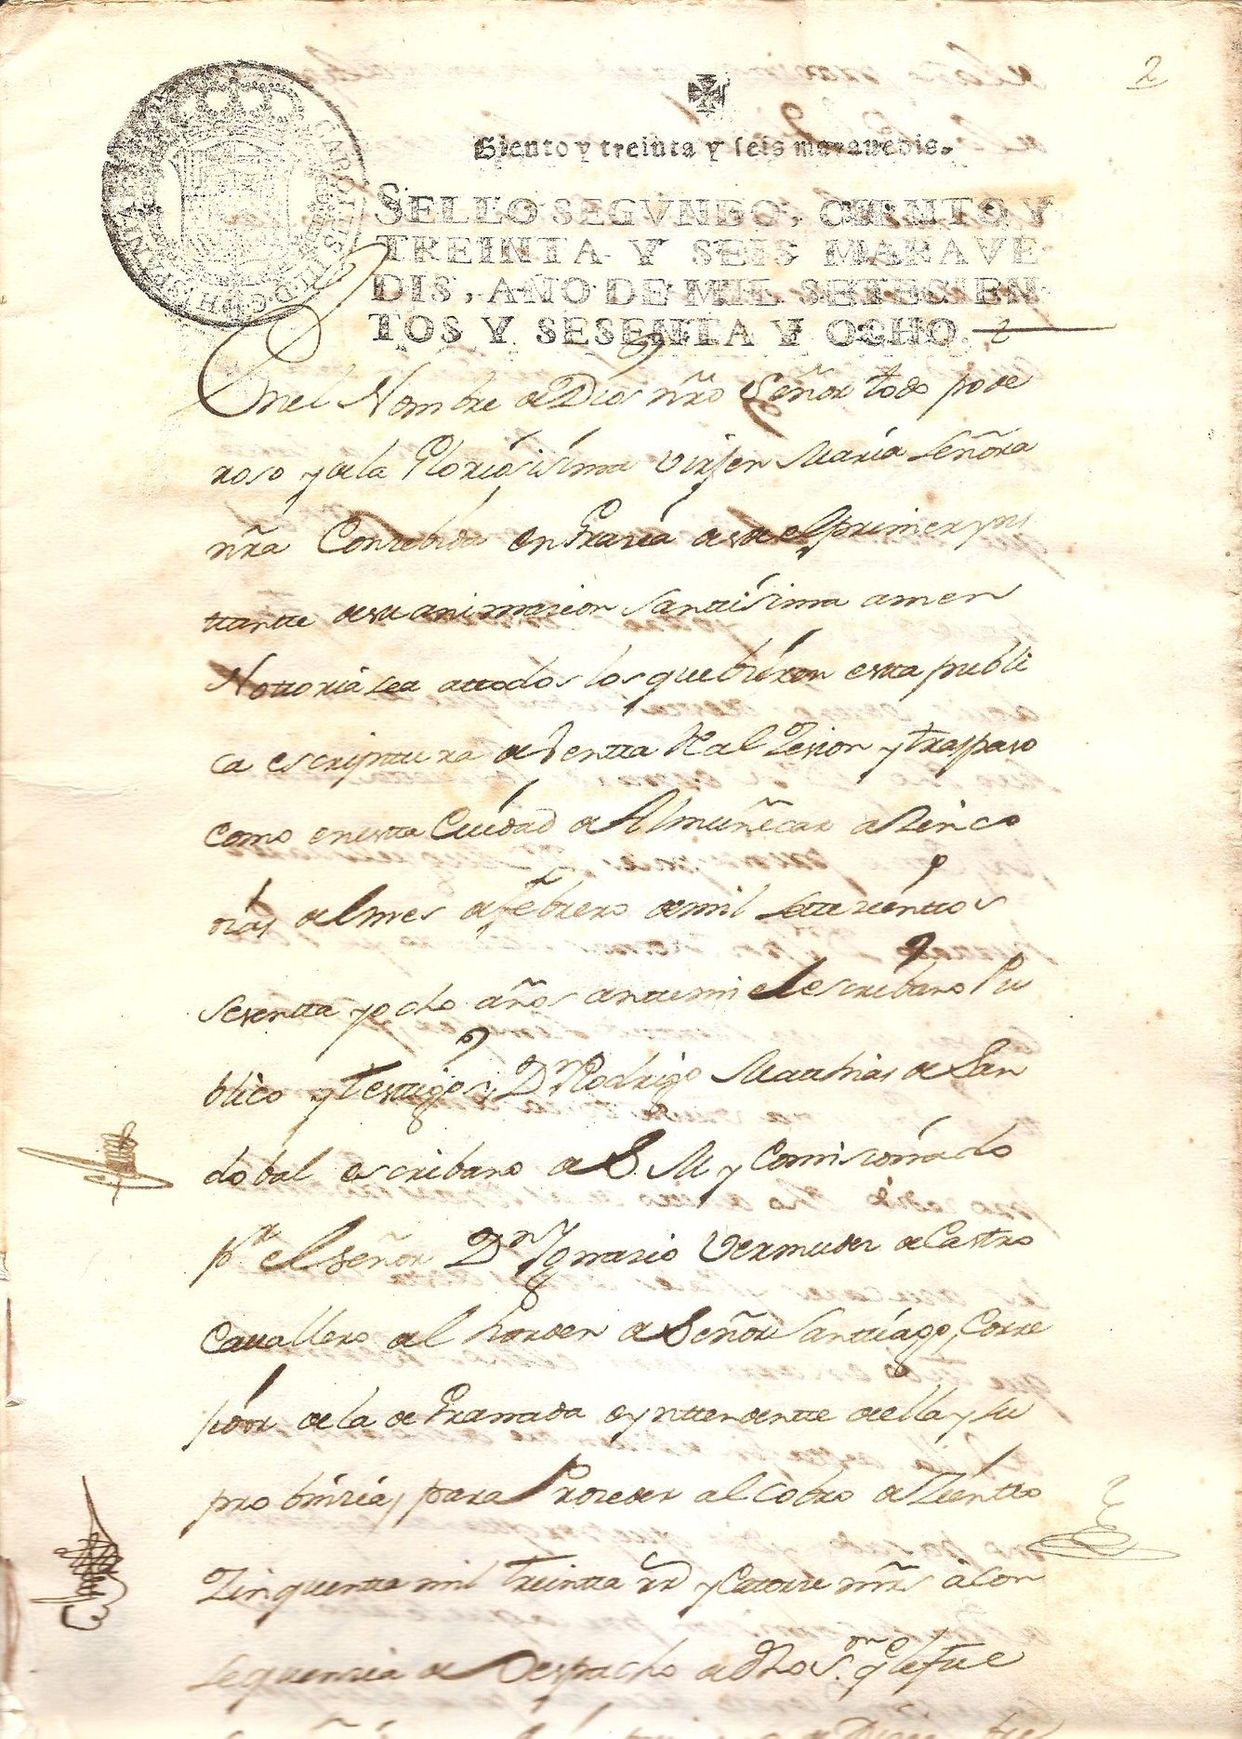 2
Siento y treinta y seis maravedis.
CAROLUS III D G HISPANIA
SELLO SEGVNDO, CIENTO Y
TREINTA Y SEIS MARAVE
DIS, AÑO DE MIL SETECIEN
TOS Y SESENTA Y OCHO.
Enel Nombre de Dios nrõ Señor todo pode
roso y de la Gloriosisima Virjen Maria Señora
nrã Conzebida en Grazia desde el primer yns
ttantte desu animazion santtisima amen
Nottoria sea attodos los que bieren estta publi
ca escripttura de Ventta Real Zesion y traspaso
como en estta Ciudad de Almuñecar a Zinco
dias del mes de febrero de mil settezienttos
sesentta y ocho años antte mi el escribano Pu
blico y testtigos, Dn Rodrigo Matthias de San
dobal escribano de S. M y Comisionado
pr el señor Dn Ygnazio Vermudez de Castro
Cavallero del horden de Señor Santtiago, Corre
jidor de la de Granada e ynttendentte de ella y su
probinzia, para Prozeder al Cobro de Zientto
Zinquentta mil treintta rrs y Cattorze mrs a Con
sequenzia de Despacho de dho Sr. que le fue